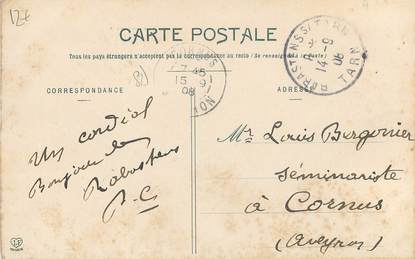 12€
CARTE POSTALE
Tous les pays étrangers n'acceptent pas la correspondance au recto (Se renseigner à la poste)
CORRESPONDANCE
ADRESSE
(81)
CORNUS
7 45
15 9
08
RABASTENS S/ TARN
14 9
08
TARN
Un cordial
Bonjour de
Rabastens
A. C
Mr Louis Burgonier
séminariste
à Cornus
(Aveyron)